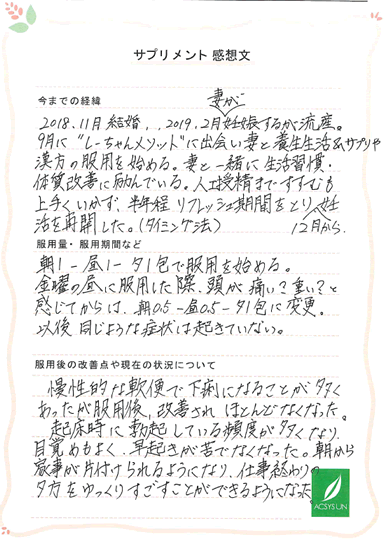 サプリメント 感想文
今までの経緯
妻が
2018.11月 結婚、、2019.2月妊娠するが流産。
9月に"しーちゃんメソッド"に出会い妻と養生生活&サプリや
漢方の服用を始める。妻と一緒に生活習慣・
体質改善に励んでいる。人工授精まですすむも
上手くいかず、半年程リフレッシュ期間をとり、妊
活を再開した。(タイミング法) 12月から.
服用量・服用期間など
朝1-昼1-夕1包で服用を始める。
金曜の昼に服用した際、頭が痛い?重い?と
感じてからは、朝0.5-昼0.5-夕1包に変更。
以後同じような症状は起きていない。
服用後の改善点や現在の状況について
慢性的な軟便で下痢になることが多く
あったが服用後、改善されほとんどなくなった。
起床時に勃起している頻度が多くなり、
目覚めもよく、早起きが苦でなくなった。朝から
家事が片付けられるようになり、仕事終わりの
夕方をゆっくりすごすことができるようになった
ACSYS UN